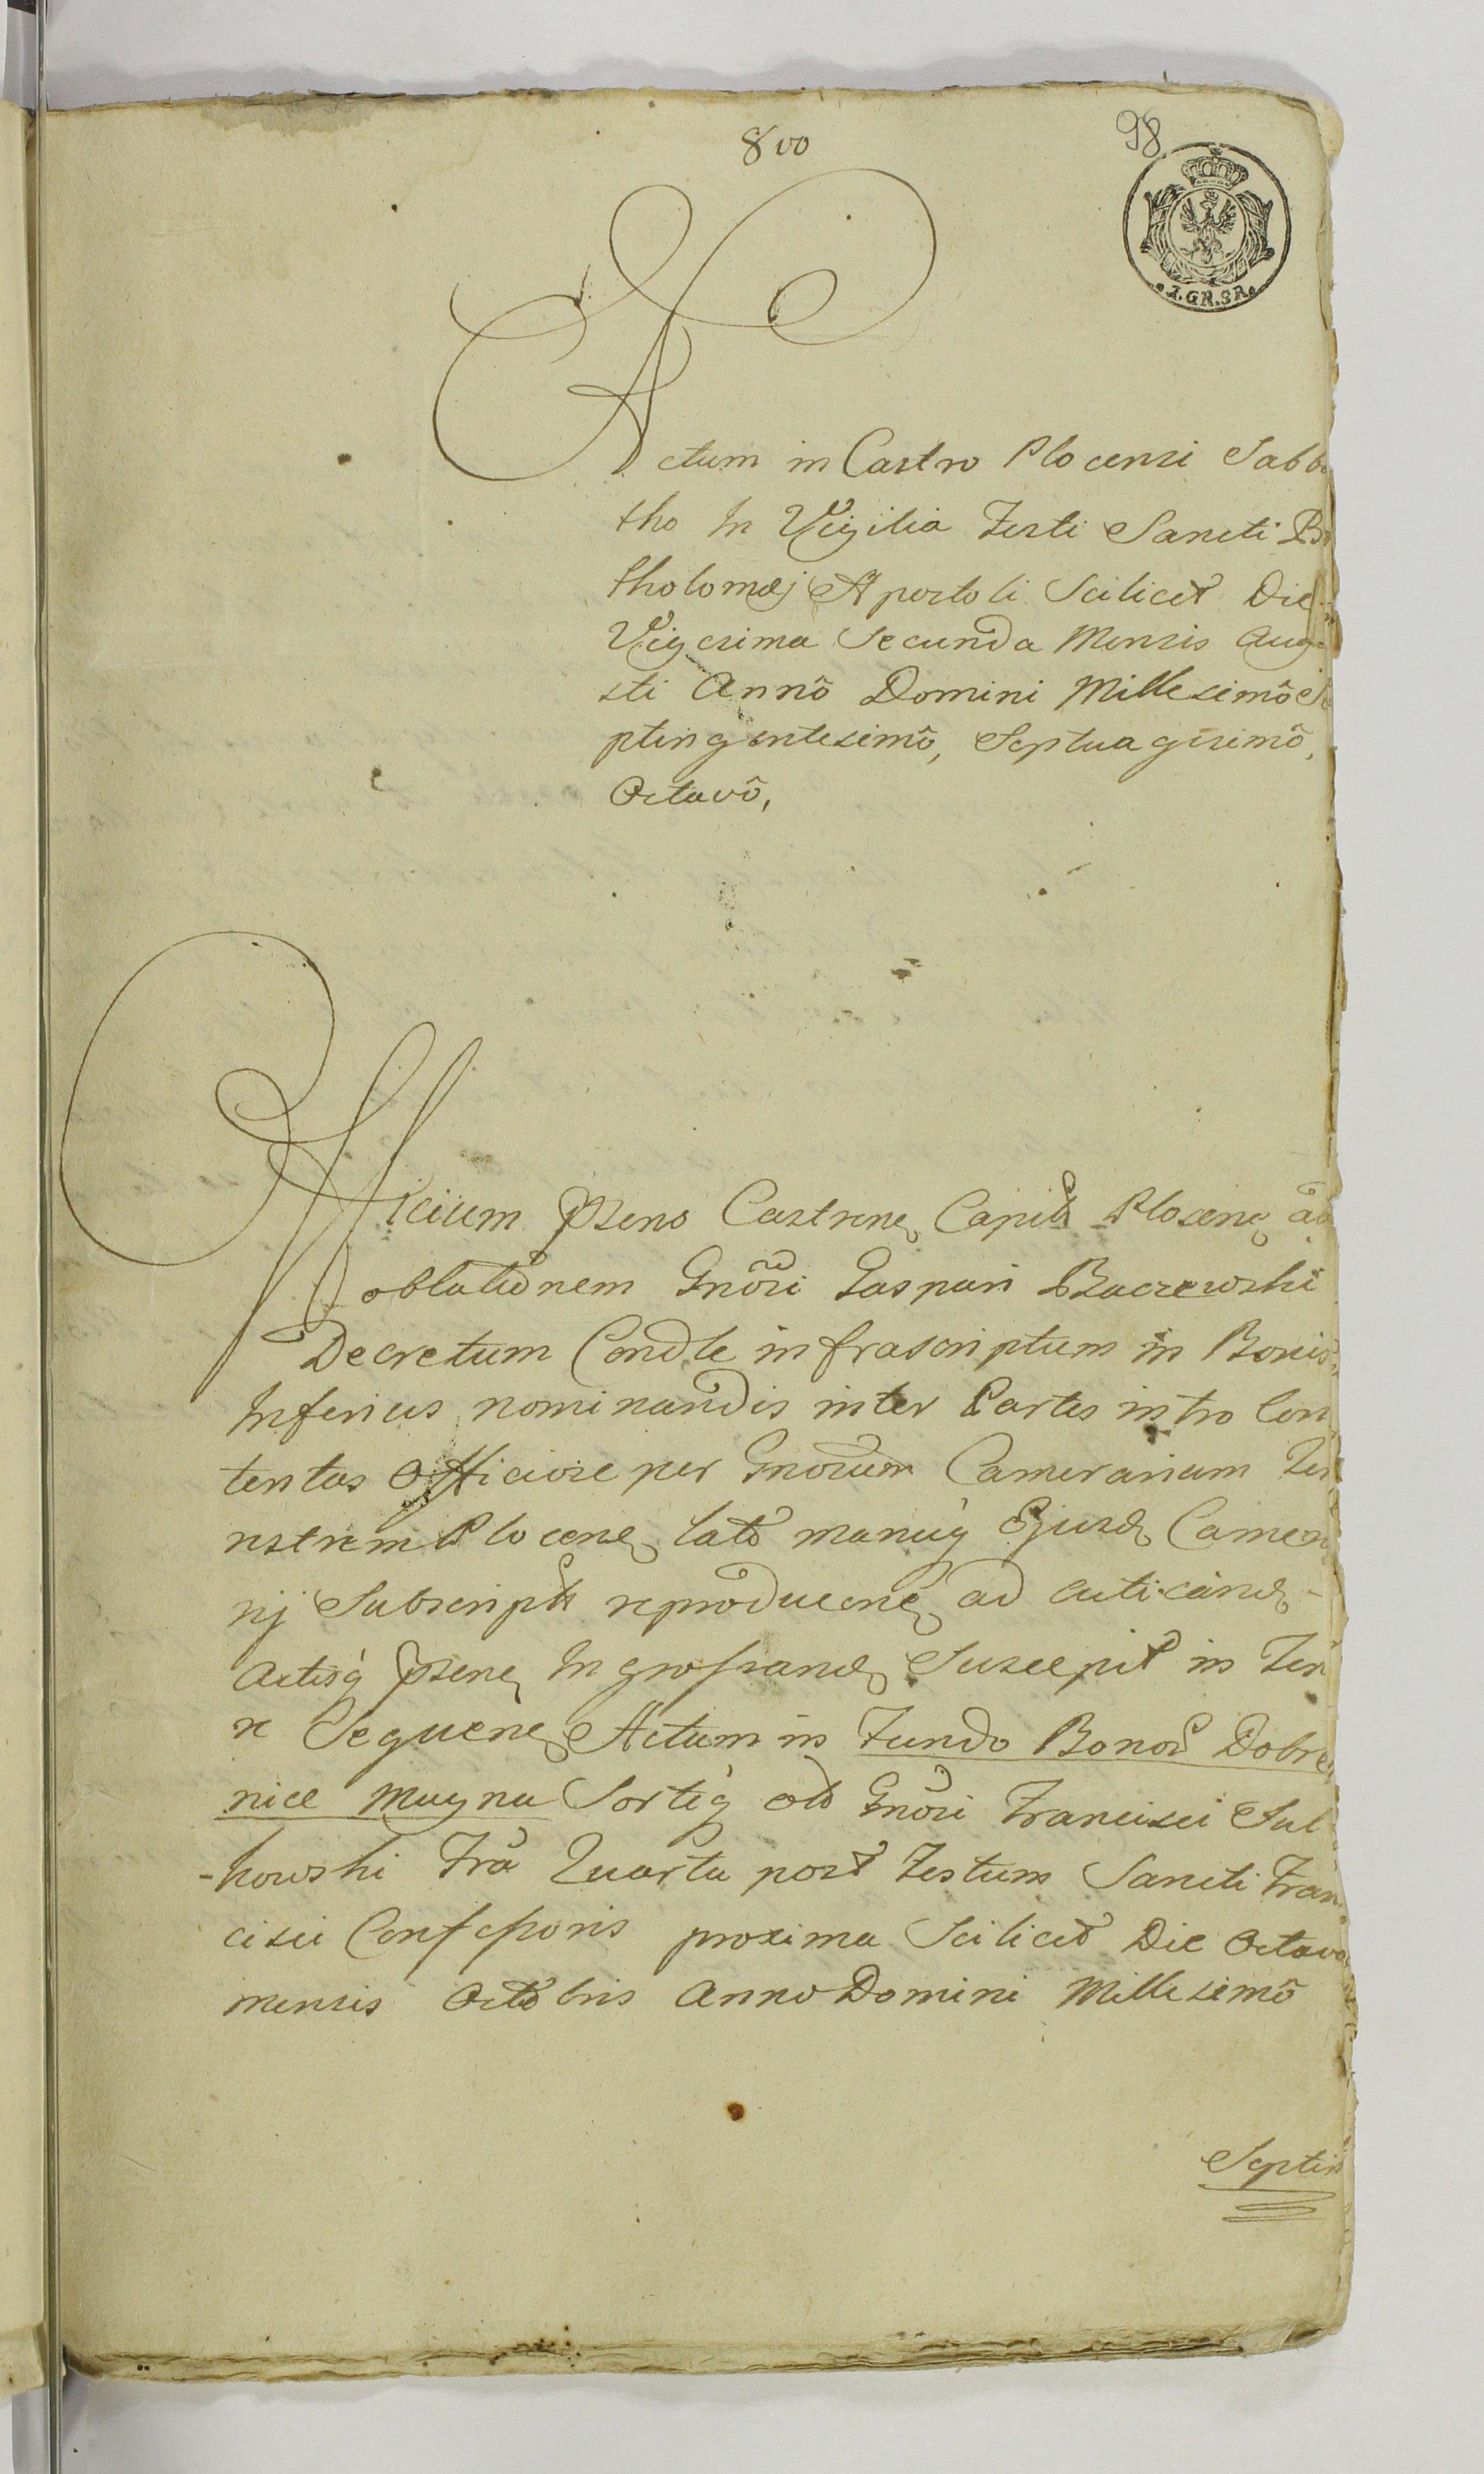 800
98
I.GR.SR.
Actum in Castro Plocensi Sabba
tho In Vigilia Festi Sancti
tholomæj Apostoli Scilicet Die
Vigesima Secunda Mensis Augu
sti Annô Domini Millesimô Se
ptingentesimô, Septuagesimô,
Octavô,
Officium Pszens Castrene Capitle Plocene ad
oblationem Gnôsi Gaspari Baczewski
Decretum Condle infrascriptum in Bonis
Inferius nominandis inter Partes intro Con
tentas Officiose per Gnosum Camerarium Ter
restrem Plocense lato manuq Ejusd Camera
rij Subscript reproducene ad acticand
Actisq Pszene Ingrossand Suscepit in Teno
re Sequene Actum in Fundo Bonoru Dobre
nice Magna Sortisq olb Gnôsi Francisci Sul
-kowski Fra Quarta post Festum Sancti Fran
cisci Confessoris proxima Scilicet Die Octava
mensis Octobris Anno Domini Millesimô
Septin